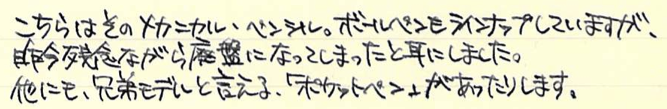 こちらはそのメカニカル・ペンシル。ボールペンもラインナップしていますが、
昨今残念ながら廃盤になってしまったと耳にしました。
他にも、兄弟モデルと言える、「ポケットペン」があったりします。